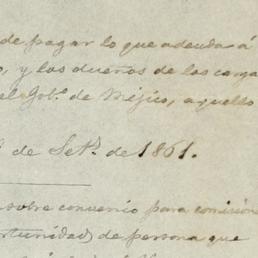 de pagar lo que adeuda á
o, y los dueños de las carga
el Gob.º de Méjico, aquello
de Set.e de 1861.
sobre convenio para comision
ortunidad de persona que